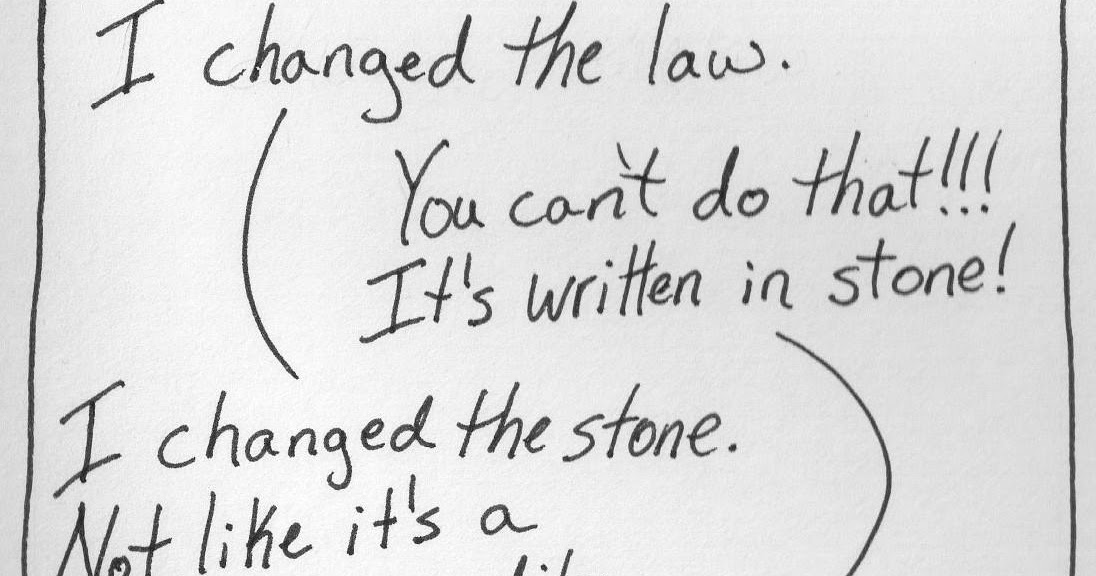 I changed the law.
You can't do that!!!
It's written in stone!
I changed the stone.
Not like it's a